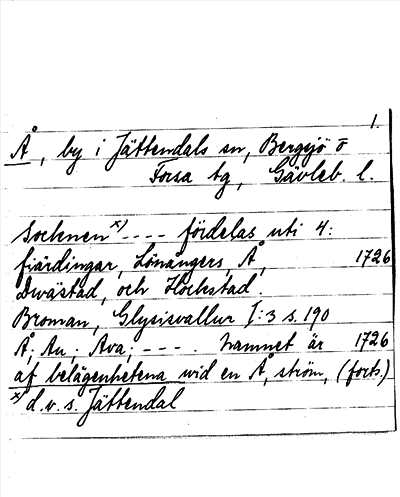 1.
Å, by i Jättendals sn, Bergsjö o
Forsa tg, Gävleb. l.
Socknen x) ---- fördelas uti 4:
fjärdingar, Lönångers, Å, 1726
Dwästad, och Höckstad.
Broman, Glysisvallur I:3 s. 190
Å; Au; Ava; ---. Namnet är 1726
af belägenhetena wid en Å, ström, (forts.)
x) d.v.s. Jättendal